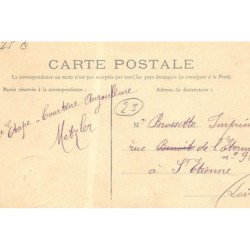 25 €
CARTE POSTALE
La correspondance au recto n'est pas acceptée par tous les pays étrangers (se renseigner à la Poste)
Partie réservée à la correspondance :
Adresse du destinataire :
23
Etape - Courtine Angoulême
Metzler
Mr Brossette Imprim
rue Benoit de l'Eterm
n° 9
à St Etienne
Loi